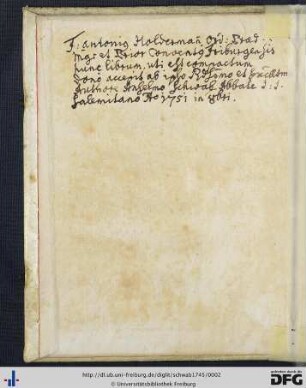 F: Antonig Holderman Ord: Præd:
Mgr et Prior Conventg Friburgensis
hunc librum, uti est compactum
dono accepit ab ipso Rdssimo et
Authore Anselmo Schwab Abbate
Salemitano Ao 1751 in 8bri.
http://dl.ub.uni-freiburg.de/diglit/schwab1745/0002
© Universitätsbibliothek Freiburg
DFG